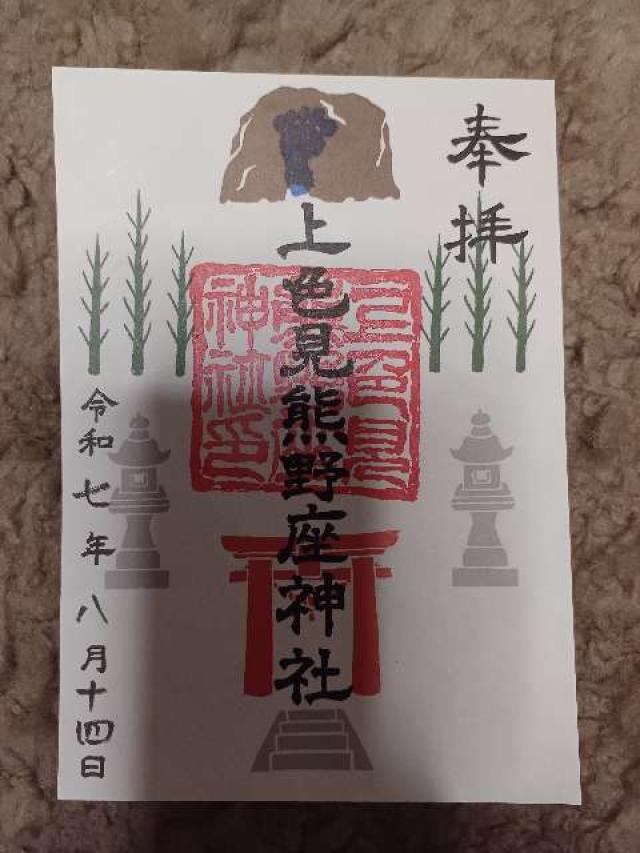 奉拝
上色見熊野座神社
上色見
熊野座
神社印
令和七年八月十四日